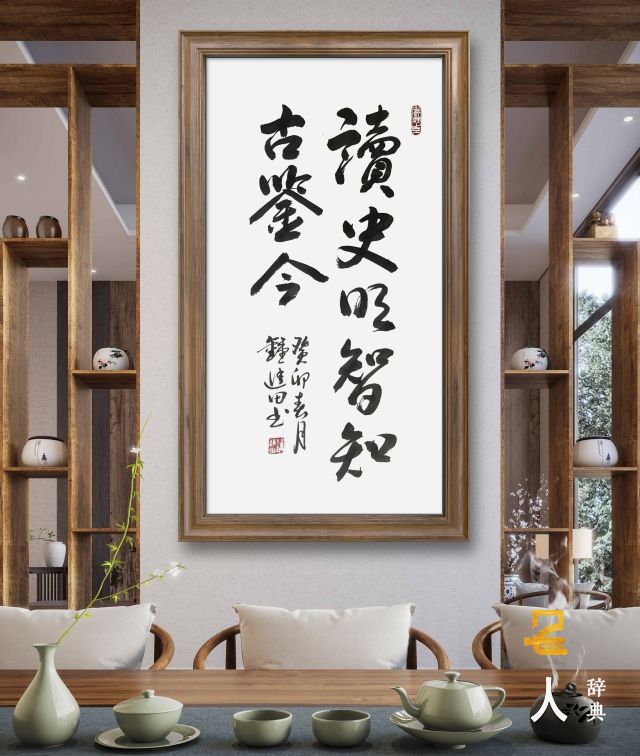 讀史明智知
古鑒今
癸卯春月
鐘進田书
名人
辞典